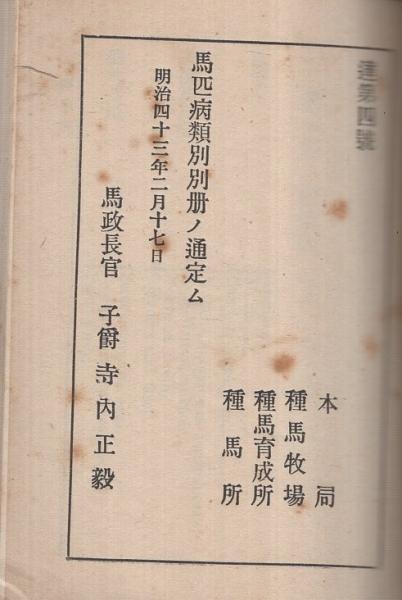 達第四號
本局
種馬牧場
種馬育成所
種馬所
馬匹病類別別册ノ通定ム
明治四十三年二月十七日
馬政長官 子爵 寺內正毅